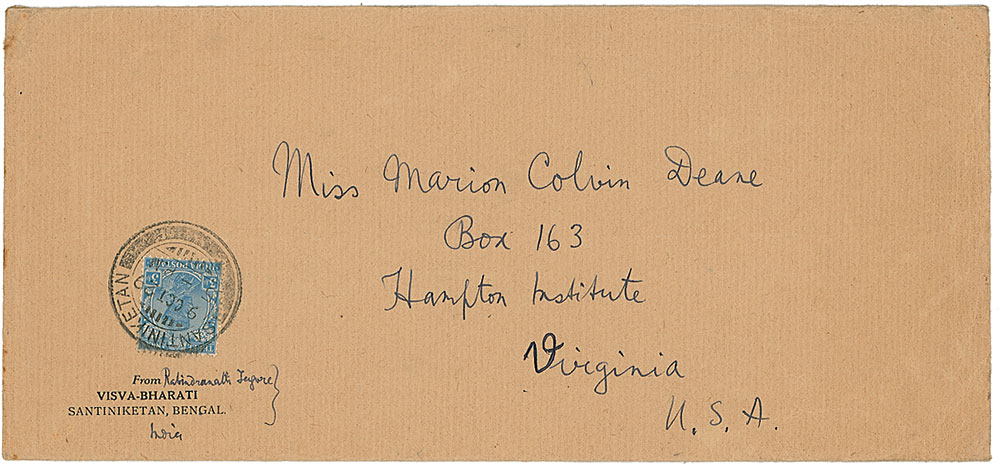 Miss Marion Colvin Deane
Box 163
Hampton Institute
Virginia
U. S. A.
SANTINIKETAN
From Rabindranath Tagore
VISVA-BHARATI
SANTINIKETAN, BENGAL.
India